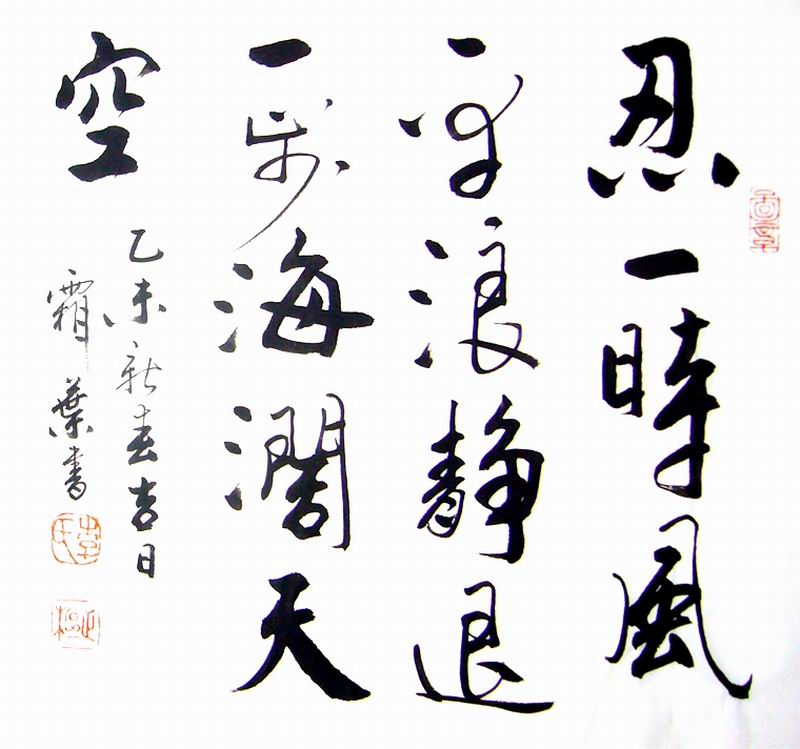 忍一時風
平浪静退
一步海濶天
空
乙未新春吉日
霜葉書